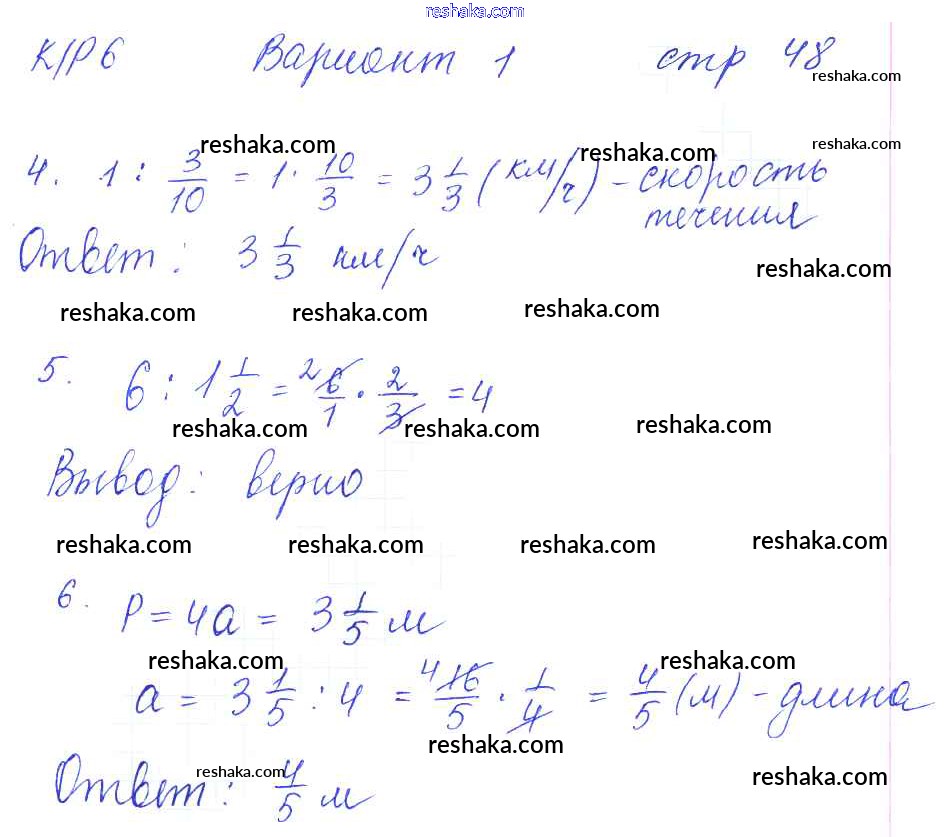 reshaka.com
К/Р 6 Вариант 1 стр 48
reshaka.com
reshaka.com reshaka.com reshaka.com
4. 1 : 3/10 = 1 · 10/3 = 3 1/3 (км/ч) - скорость
течения
Ответ: 3 1/3 км/ч
reshaka.com
reshaka.com reshaka.com reshaka.com
5. 6 : 1 1/2 = 2 6/1 · 2/3 = 4
reshaka.com reshaka.com reshaka.com
Вывод: верно
reshaka.com reshaka.com reshaka.com reshaka.com
6. P = 4a = 3 1/5 м
reshaka.com reshaka.com
a = 3 1/5 : 4 = 4 16/5 · 1/4 = 4/5 (м) - длина
reshaka.com
Ответ: 4/5 м
reshaka.com reshaka.com